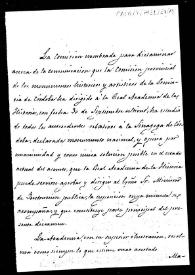 La Comision nombrada para dictaminar
acerca de la comunicacion que la Comision provincial
de los monumentos históricos y artísticos de la provin-
cia de Córdoba ha dirigido á la Real Academia de la
Historia, con fecha 30 de Septiembre último, ha estudia
do todos los antecedentes relativos á la Sinagoga de Cór-
doba, declarada monumento nacional, y opina por
unanimidad y como única solucion posible en el estado
actual del asunto, que la Real Academia de la Historia
puede servirse aprobar y dirigir al Señor Sr. Ministro
de Instruccion pública, la exposicion cuya minuta es
adjunta, y que constituye parte principal del pre-
sente dictamen.
La Academia, con su superior ilustracion, resol-
verá como siempre lo que estime más acertado.
Ma-